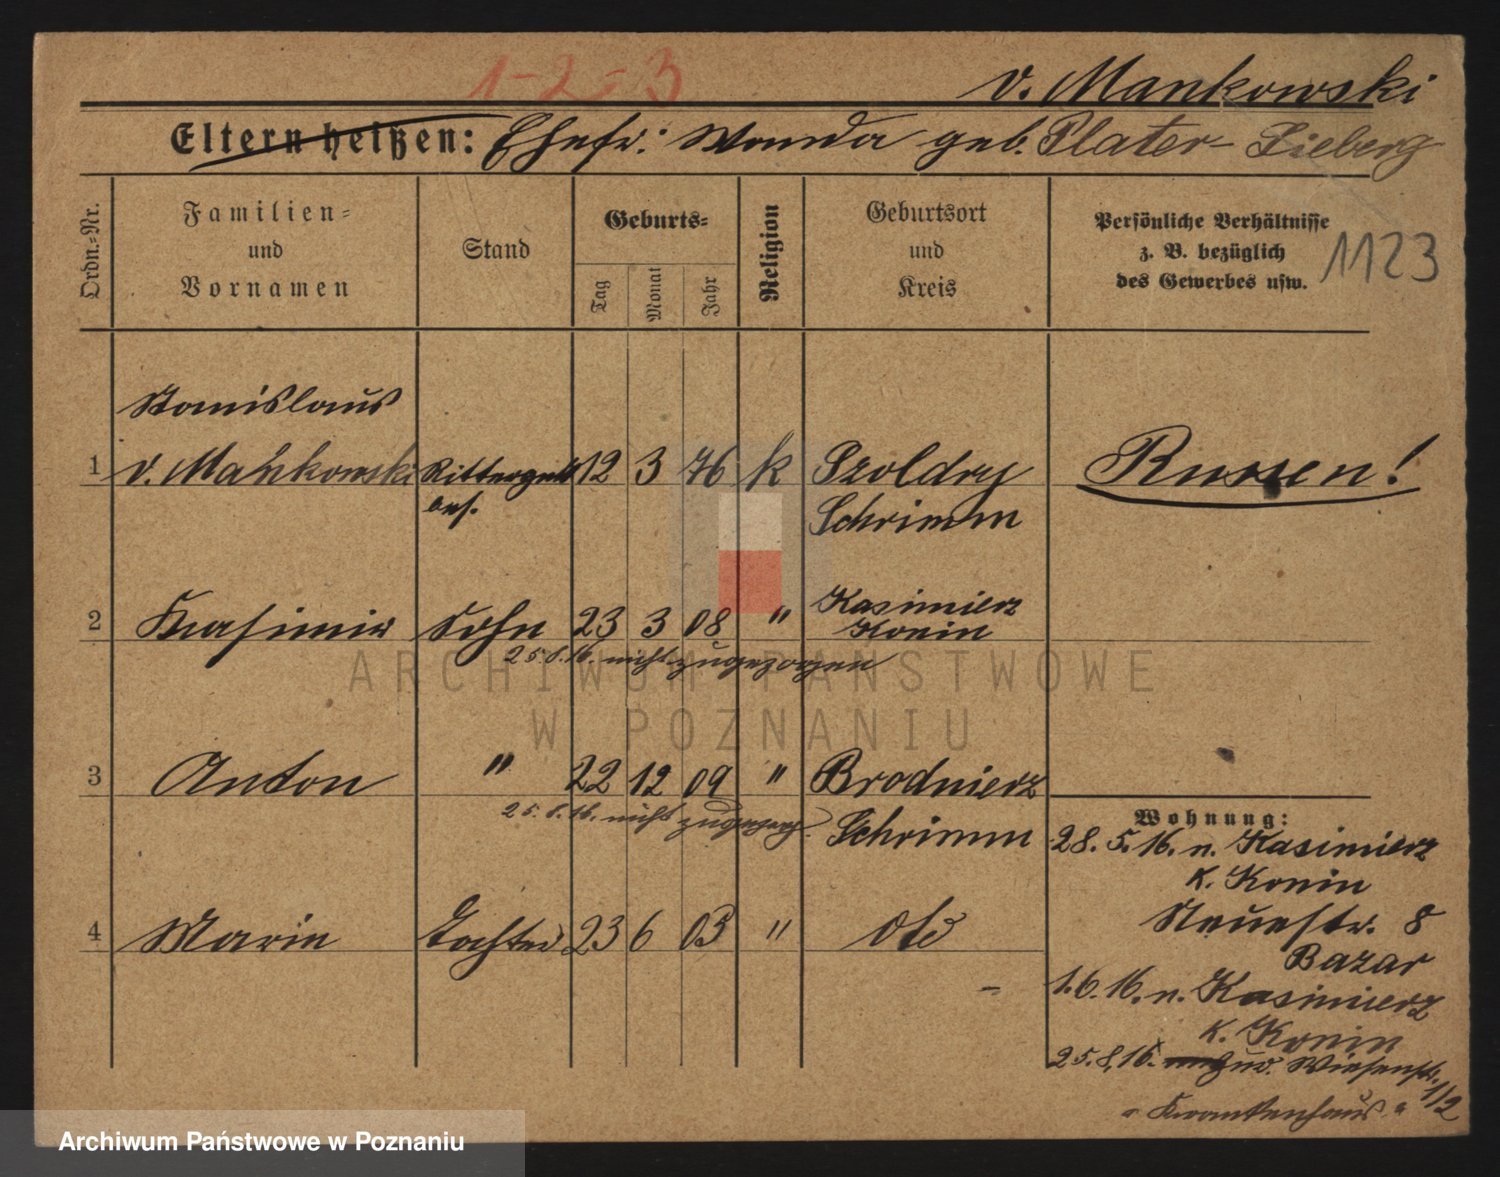 1-2-3
v. Mankowski
Eltern heißen: Ehefr: Wanda geb. Plater-Sieberg
Ordn.-Nr.
Familien-
und
Vornamen
Stand
Geburts-
Tag
Monat
Jahr
Religion
Geburtsort
und
Kreis
Persönliche Verhältnisse
z. B. bezüglich
des Gewerbes usw.
1123
Stanislaus
1 v. Mankowski Ritterguts 12 3 76 k Szoldry Russen!
bes. Schrimm
Kasimierz
2 Kasimir Sohn 23 3 08 " Konin
25.8.16. nicht zugezogen
3 Anton " 22 12 09 " Brodnierz
25.8.16. nicht zugezog. Schrimm
4 Marie Tochter 23 6 03 " Otd
Wohnung:
28. 5. 16. n. Kasimierz
K. Konin
Neuestr. 8
Bazar
1. 6. 16. n. Kasimierz
K. Konin
25.8.16. zud. Wiesenstr. 1/2
"Krankenhaus"
ARCHIWUM PAŃSTWOWE
W POZNANIU
Archiwum Państwowe w Poznaniu